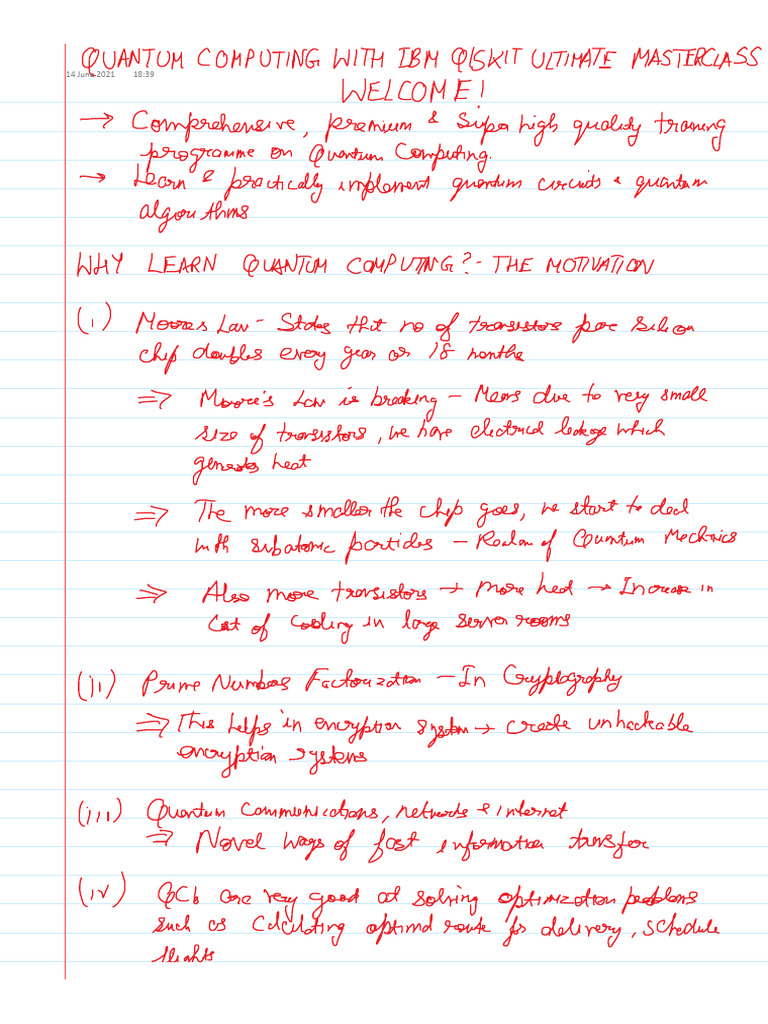 QUANTUM COMPUTING WITH IBM QISKIT ULTIMATE MASTERCLASS
14 June 2021 18:39
WELCOME!
→ Comprehensive, premium & super high quality training
programme on Quantum Computing.
→ Learn & practically implement quantum circuits & quantum
algorithms
WHY LEARN QUANTUM COMPUTING? - THE MOTIVATION
(i) Moores Law - States that no of transistors per silicon
chip doubles every year or 18 months
⇒ Moore's Law is breaking - Means due to very small
size of transistors, we have electrical leakage which
generates heat
⇒ The more smaller the chip goes, we start to deal
with subatomic particles - Realm of Quantum Mechanics
⇒ Also more transistors → More heat → Increase in
Cost of Cooling in large server rooms
(ii) Prime Numbers Factorization - In Cryptography
⇒ This helps in encryption system → create unhackable
encryption systems
(iii) Quantum Communications, networks & internet
⇒ Novel ways of fast information transfer
(iv) QCs are very good at solving optimization problems
such as Calculating optimal route for delivery, schedule
flights